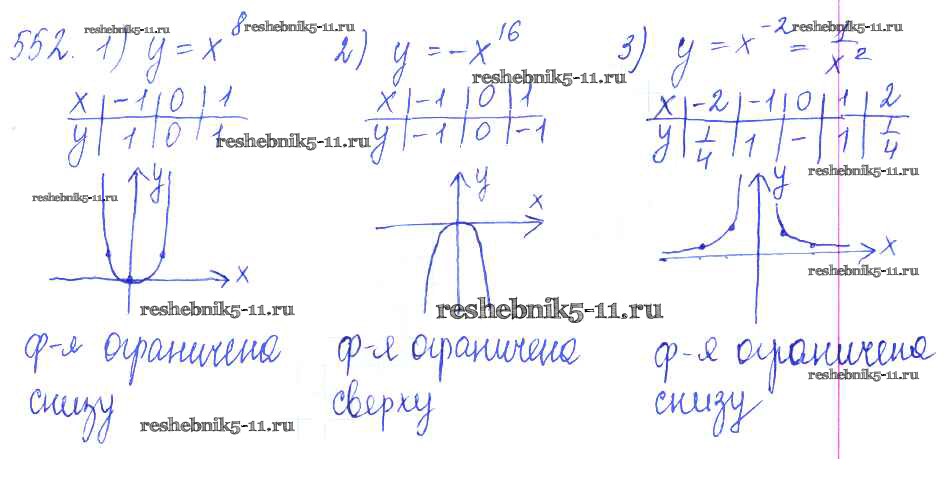 552. 1) y = x⁸ 2) y = -x¹⁶ 3) y = x⁻² = 1/x²
reshebnik5-11.ru
reshebnik5-11.ru
reshebnik5-11.ru
reshebnik5-11.ru
x | -1 | 0 | 1
y | 1 | 0 | 1
x | -1 | 0 | 1
y | -1 | 0 | -1
x | -2 | -1 | 0 | 1 | 2
y | 1/4 | 1 | - | 1 | 1/4
reshebnik5-11.ru
reshebnik5-11.ru
reshebnik5-11.ru
y
x
y
x
y
x
reshebnik5-11.ru
reshebnik5-11.ru
reshebnik5-11.ru
ф-я ограничена
снизу
ф-я ограничена
сверху
ф-я ограничена
снизу
reshebnik5-11.ru
reshebnik5-11.ru